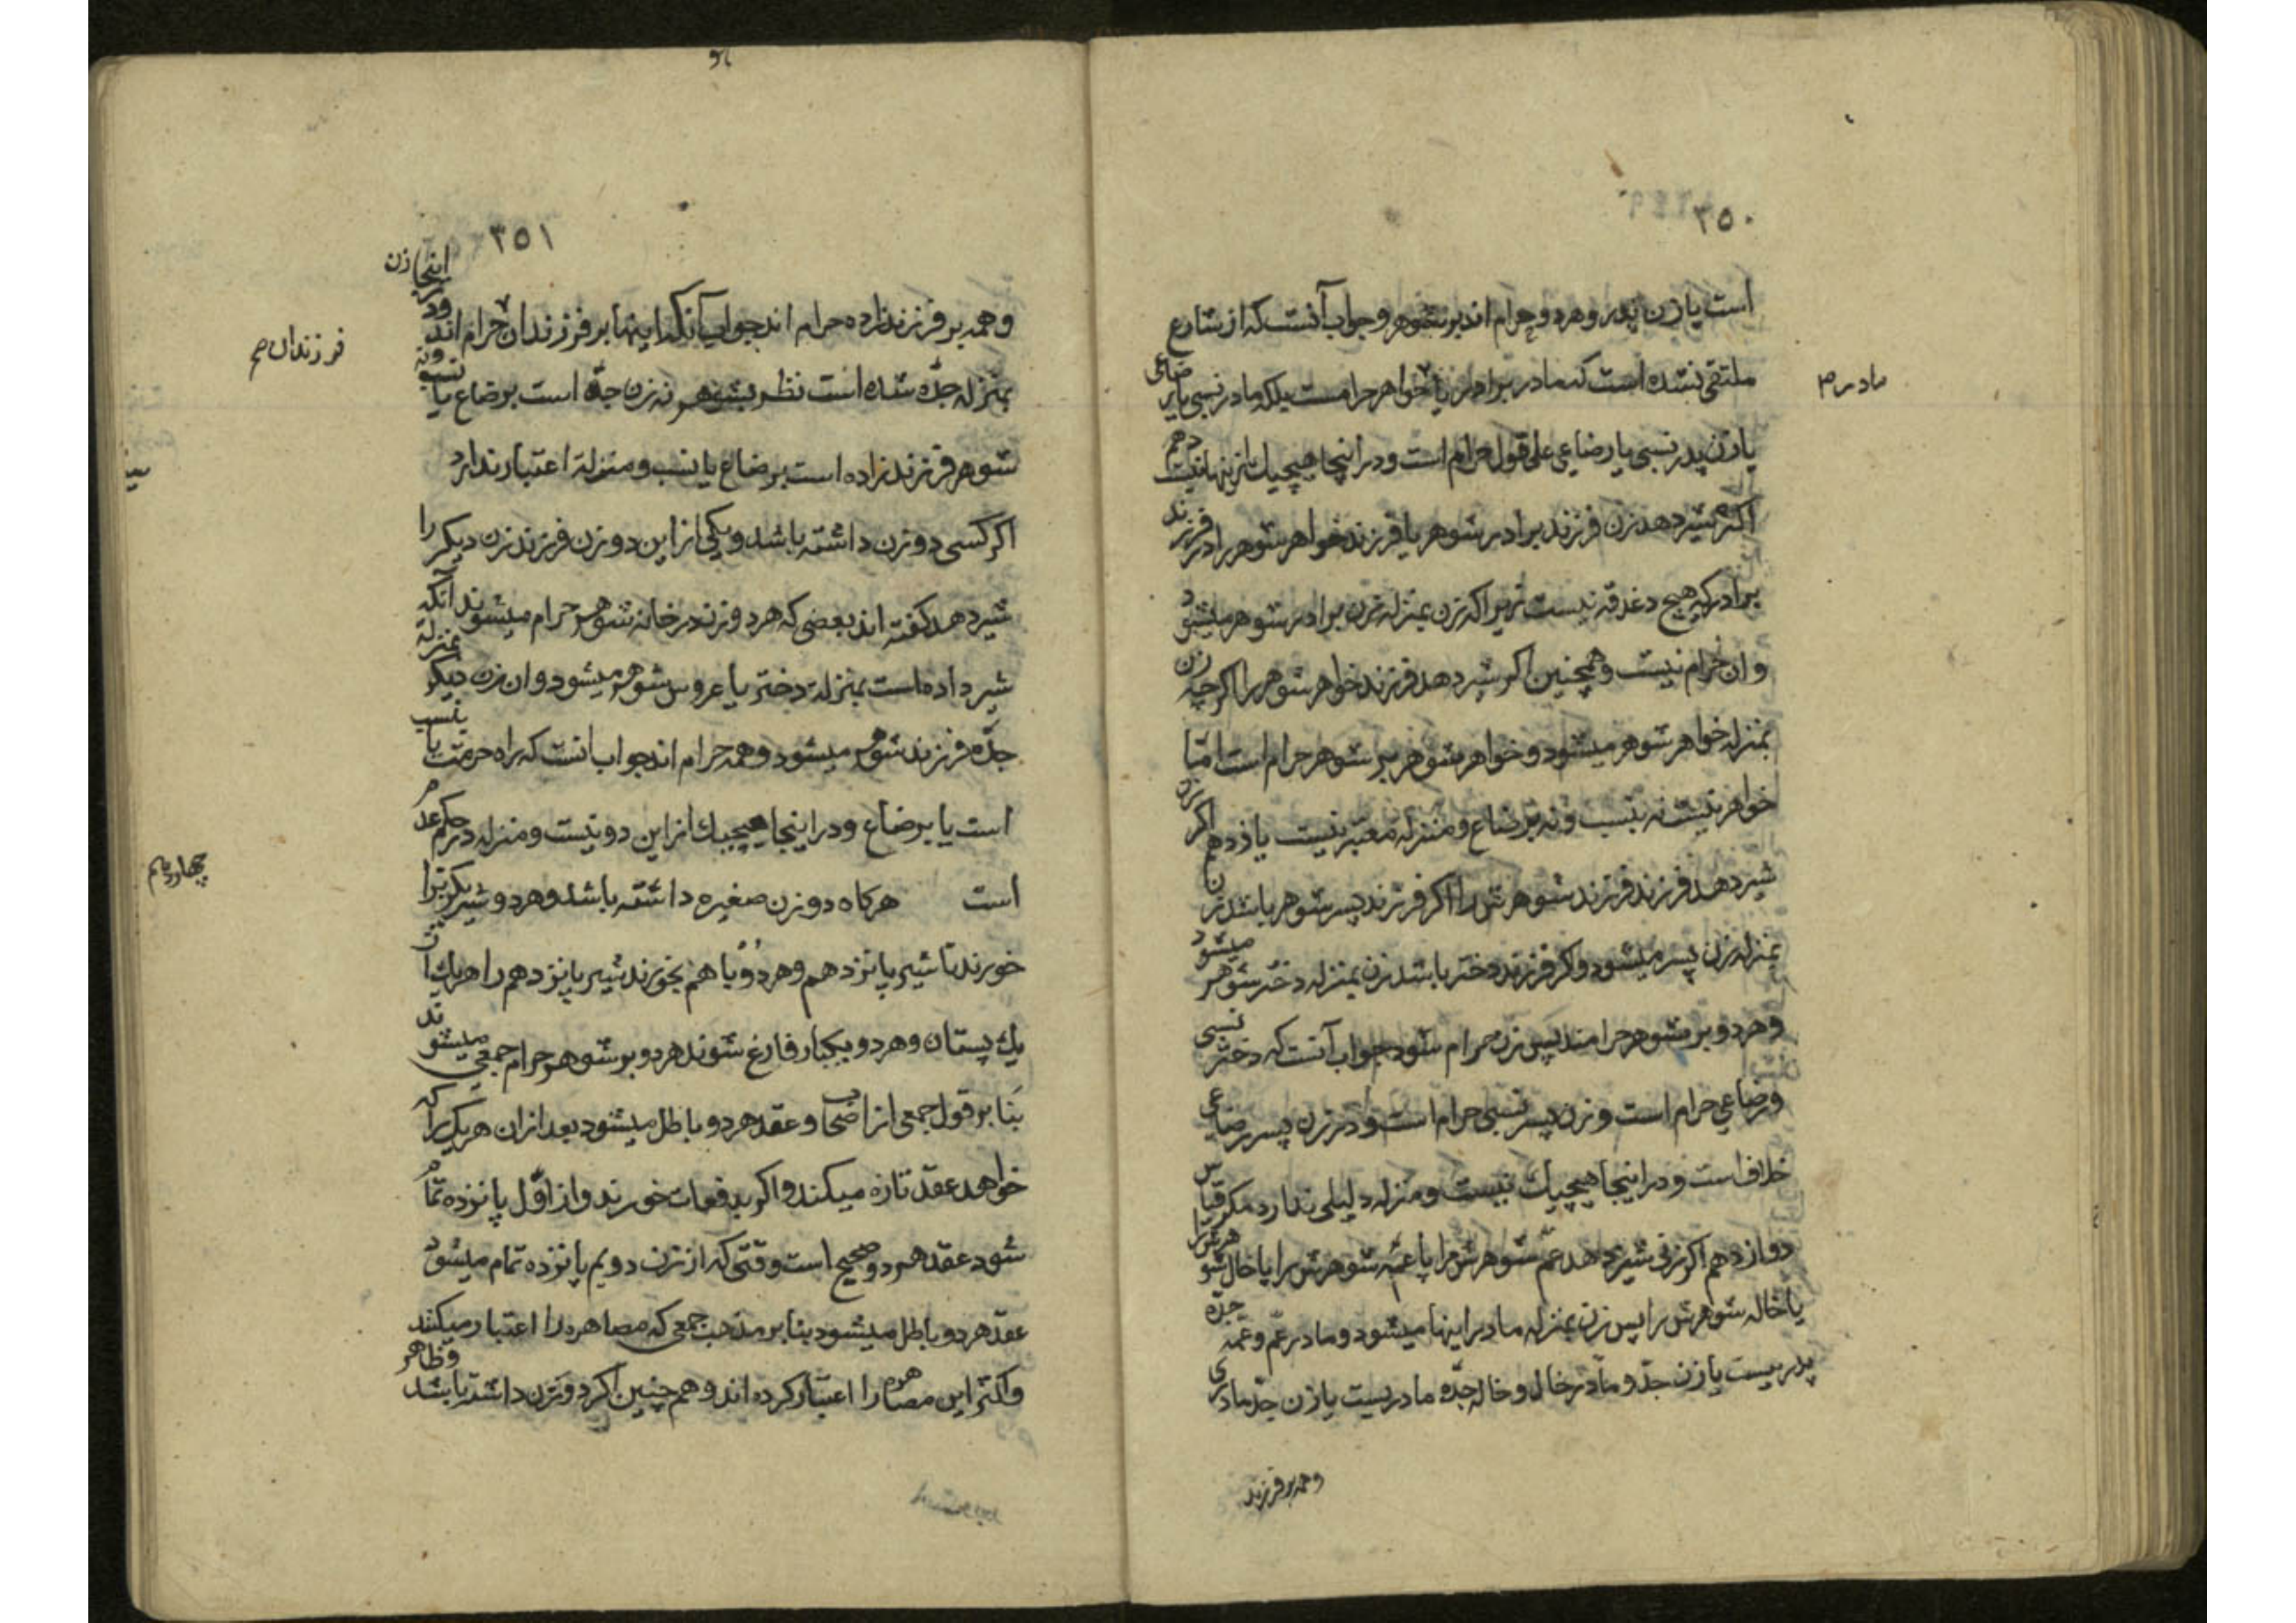 ۳۵۰
است یا زن پدر و هر دو حرام اند بر شوهر و جواب آنست که از شارع
ملتقی نشده است که مادر برادر یا خواهر حرامست بلکه مادر نسبی یا رضاعی
مادر
یا زن پدر نسبی یا رضاعی علی قول حرام است و در اینجا هیچیك از ینها نیست دهم
اگر شیر دهد زن فرزند برادر شوهر یا فرزند خواهر شوهر را در فرزند
برادر که هیچ دغدقه نیست زیرا که زن بمنزله زن برادر شوهر میشود
و ان حرام نیست و همچنین اگر شیر دهد فرزند خواهر شوهر را اگرچه زن
بمنزله خواهر شوهر میشود و خواهر شوهر بر شوهر حرام است امّا
خواهر نیست نه بنسب و نه برضاع و منزله معتبر نیست یازدهم اگر زن
شیر دهد فرزند فرزند شوهرش را اگر فرزند پسر شوهر باشد زن
بمنزله زن پسر میشود و کر فرزند دختر باشد زن بمنزله دختر شوهر میشود
و هر دو بر شوهر حرامند پس زن حرام شود جواب آنست که دختر نسبی
و رضاعی حرام است و زن پسر نسبی حرام است و در زن پسر رضاعی
خلاف است و در اینجا هیچیك نیست و منزله دلیلی ندارد مکر قیاس
دوازدهم اگر زنی شیر دهد عمّ شوهرش را یا عمّه شوهرش را یا خال شوهرش را
یا خاله شوهرش را پس زن بمنزله مادر اینها میشود و مادر عم و عمه جدّه
پدریست یا زن جدّ و مادر خال و خاله جدّه مادریست یا زن جدّ مادری
و همه بر فرزند
۳۵۱
و همه بر فرزند زاده حرام اند جواب آنکه اینها بر فرزندان حرام اند و در اینجا زن
فرزندان صح
بمنزله جدّه شده است نظر بشوهر نه زن جدّ است برضاع یا نسب و نه
شوهر فرزند زاده است برضاع یا نسب و منزله اعتبار ندارد
اگر کسی دو زن داشته باشد و یکی از این دو زن فرزند زن دیگر را
شیر دهد کفته اند بعضی که هر دو زن در خانه شوهر حرام میشوند آنکه
شیر داده است بمنزله دختر یا عروس شوهر میشود و ان زن دیگر بمنزله
جدّه فرزند شوهر میشود و همه حرام اند جواب انست که راه حرمت یا بنسب
است یا برضاع و در اینجا هیچیك از این دو نیست و منزله در حکم عدم
است هرکاه دو زن صغیره داشته باشد و هر دو شیر یکزن را
چهاردهم
خورند تا شیر پانزدهم و هر دو با هم بخورند شیر پانزدهم را هر یك از
یك پستان و هر دو بیکبار فارغ شوند هر دو بر شوهر حرام جمعی میشوند
بنا بر قول جمعی از اصحاب و عقد هر دو باطل میشود بعد از ان هر یك را که
خواهد عقد تازه میکند و اگر بدفعات خورند و از اوّل پانزده تمام
شود عقد هر دو صحیح است وقتی که از زن دویم پانزده تمام میشود
عقد هر دو باطل میشود بنا بر مذهب جمعی که مصاهره را اعتبار میکنند
و اکثر این مصاهره را اعتبار کرده اند و هم چنین اگر دو زن داشته باشد و ظاهر